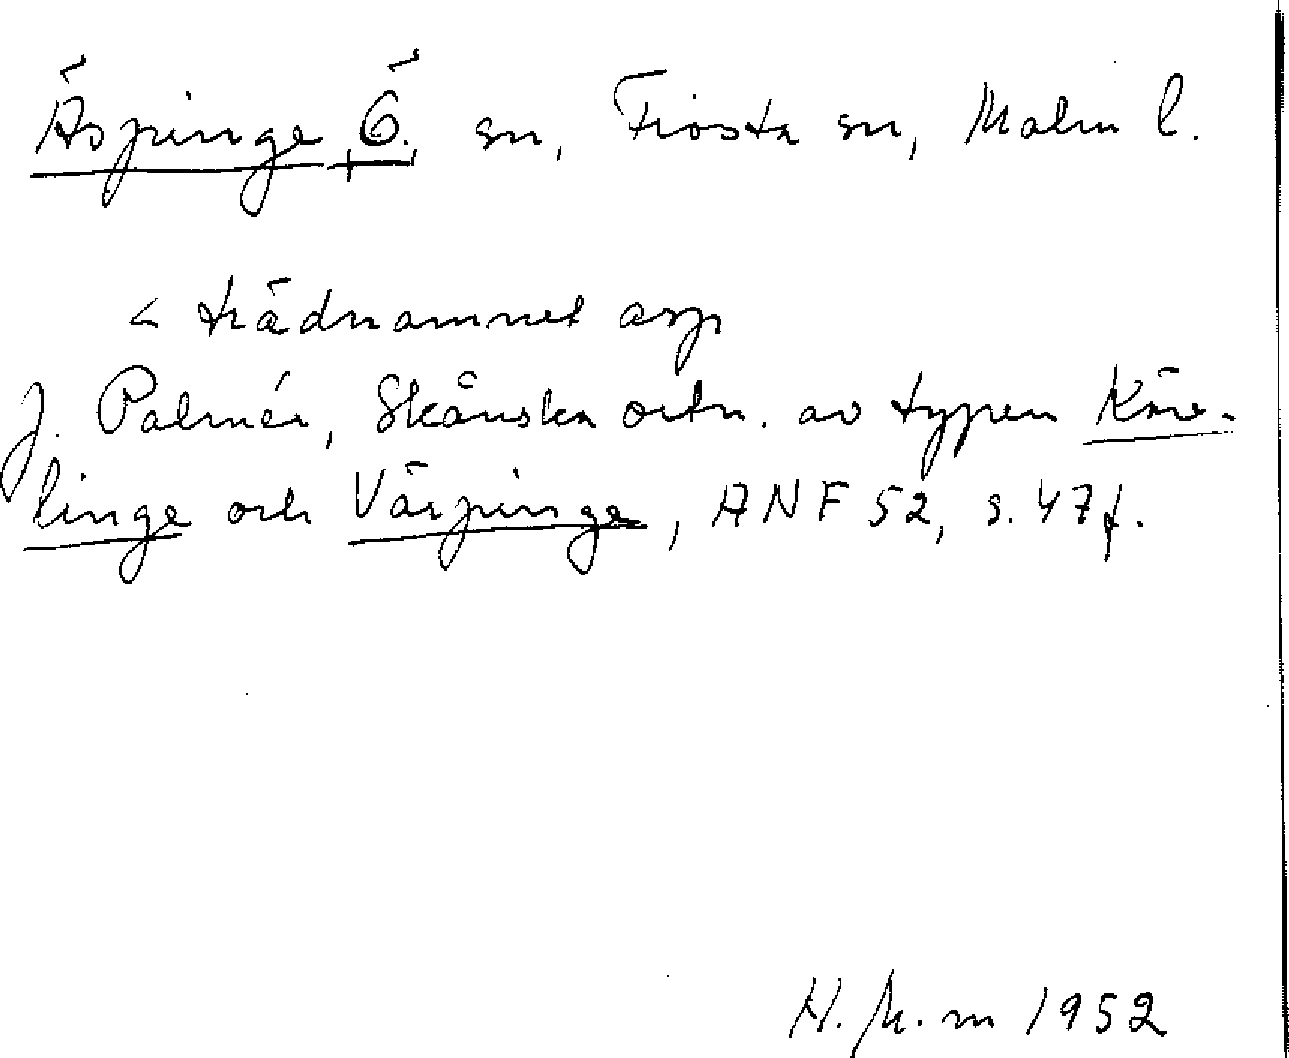 Äspinge, Ö. sn, Frosta sn, Malm l.
< trädnamnet asp
J. Palmér, Skånska ortn. av typen Käv-
linge och Värpinge, ANF 52, s. 47f.
H. M. m 1952